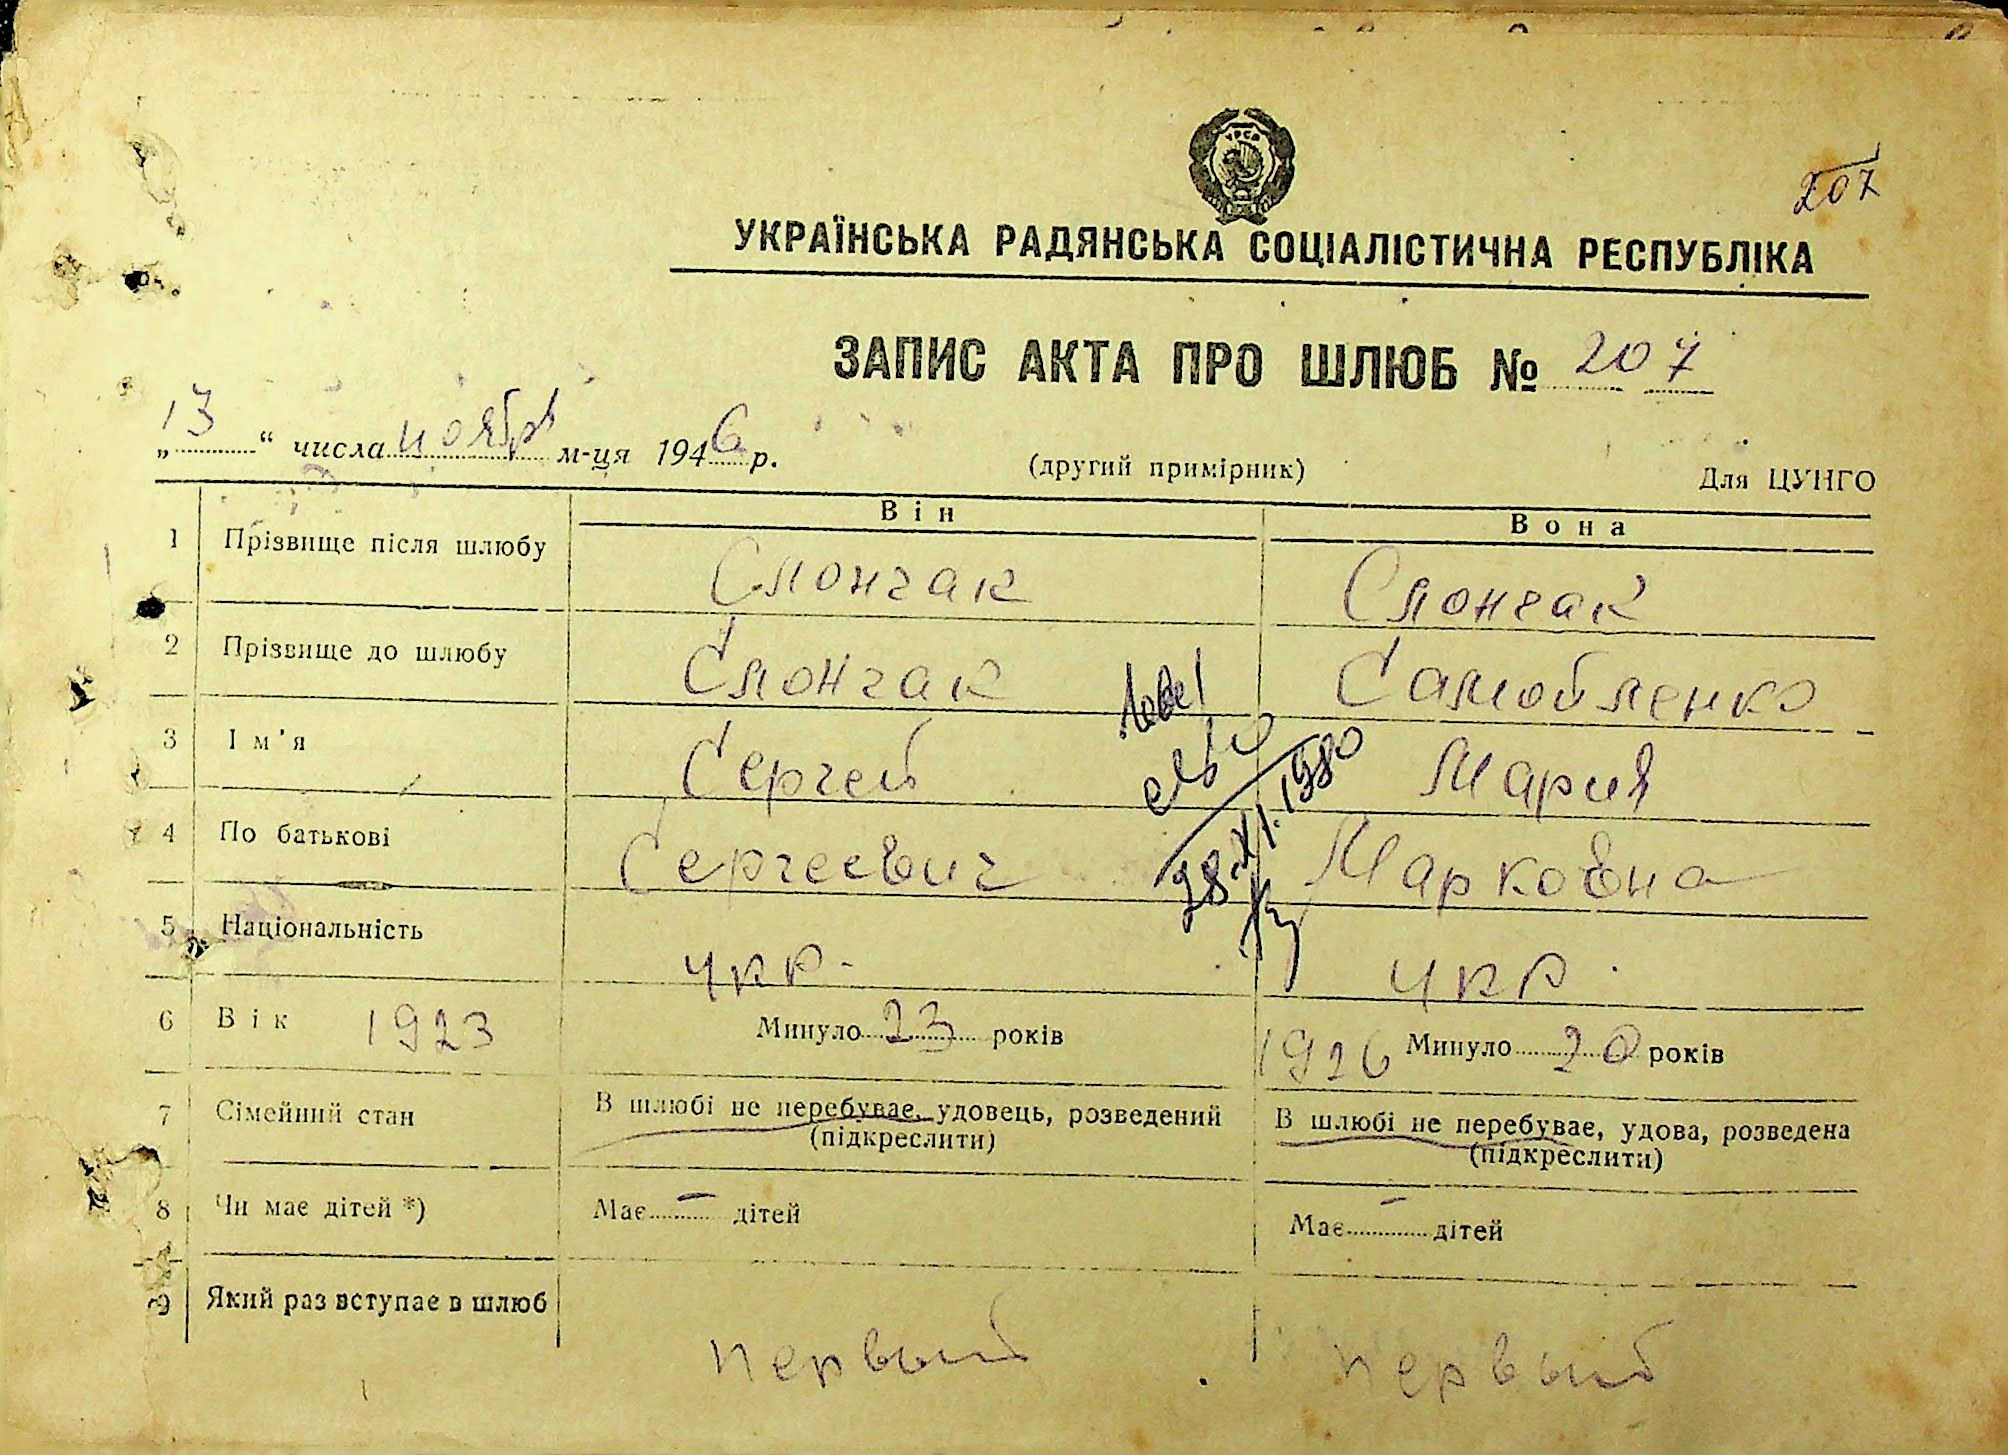 207
УРСР
УКРАЇНСЬКА РАДЯНСЬКА СОЦІАЛІСТИЧНА РЕСПУБЛІКА
ЗАПИС АКТА ПРО ШЛЮБ № 207
„13“ числа ноября м-ця 1946 р.
(другий примірник)
Для ЦУНГО
Він
Вона
1 Прізвище після шлюбу Слончак Слончак
2 Прізвище до шлюбу Слончак Самойленко
3 Ім'я Сергей Мария
4 По батькові Сергеевич Марковна
28.XI.1980
5 Національність укр. укр.
6 Вік 1923 Минуло 23 років 1926 Минуло 20 років
7 Сімейний стан В шлюбі не перебуває, удовець, розведений В шлюбі не перебуває, удова, розведена
(підкреслити) (підкреслити)
8 Чи має дітей *) Має — дітей Має — дітей
9 Який раз вступає в шлюб
первый первый